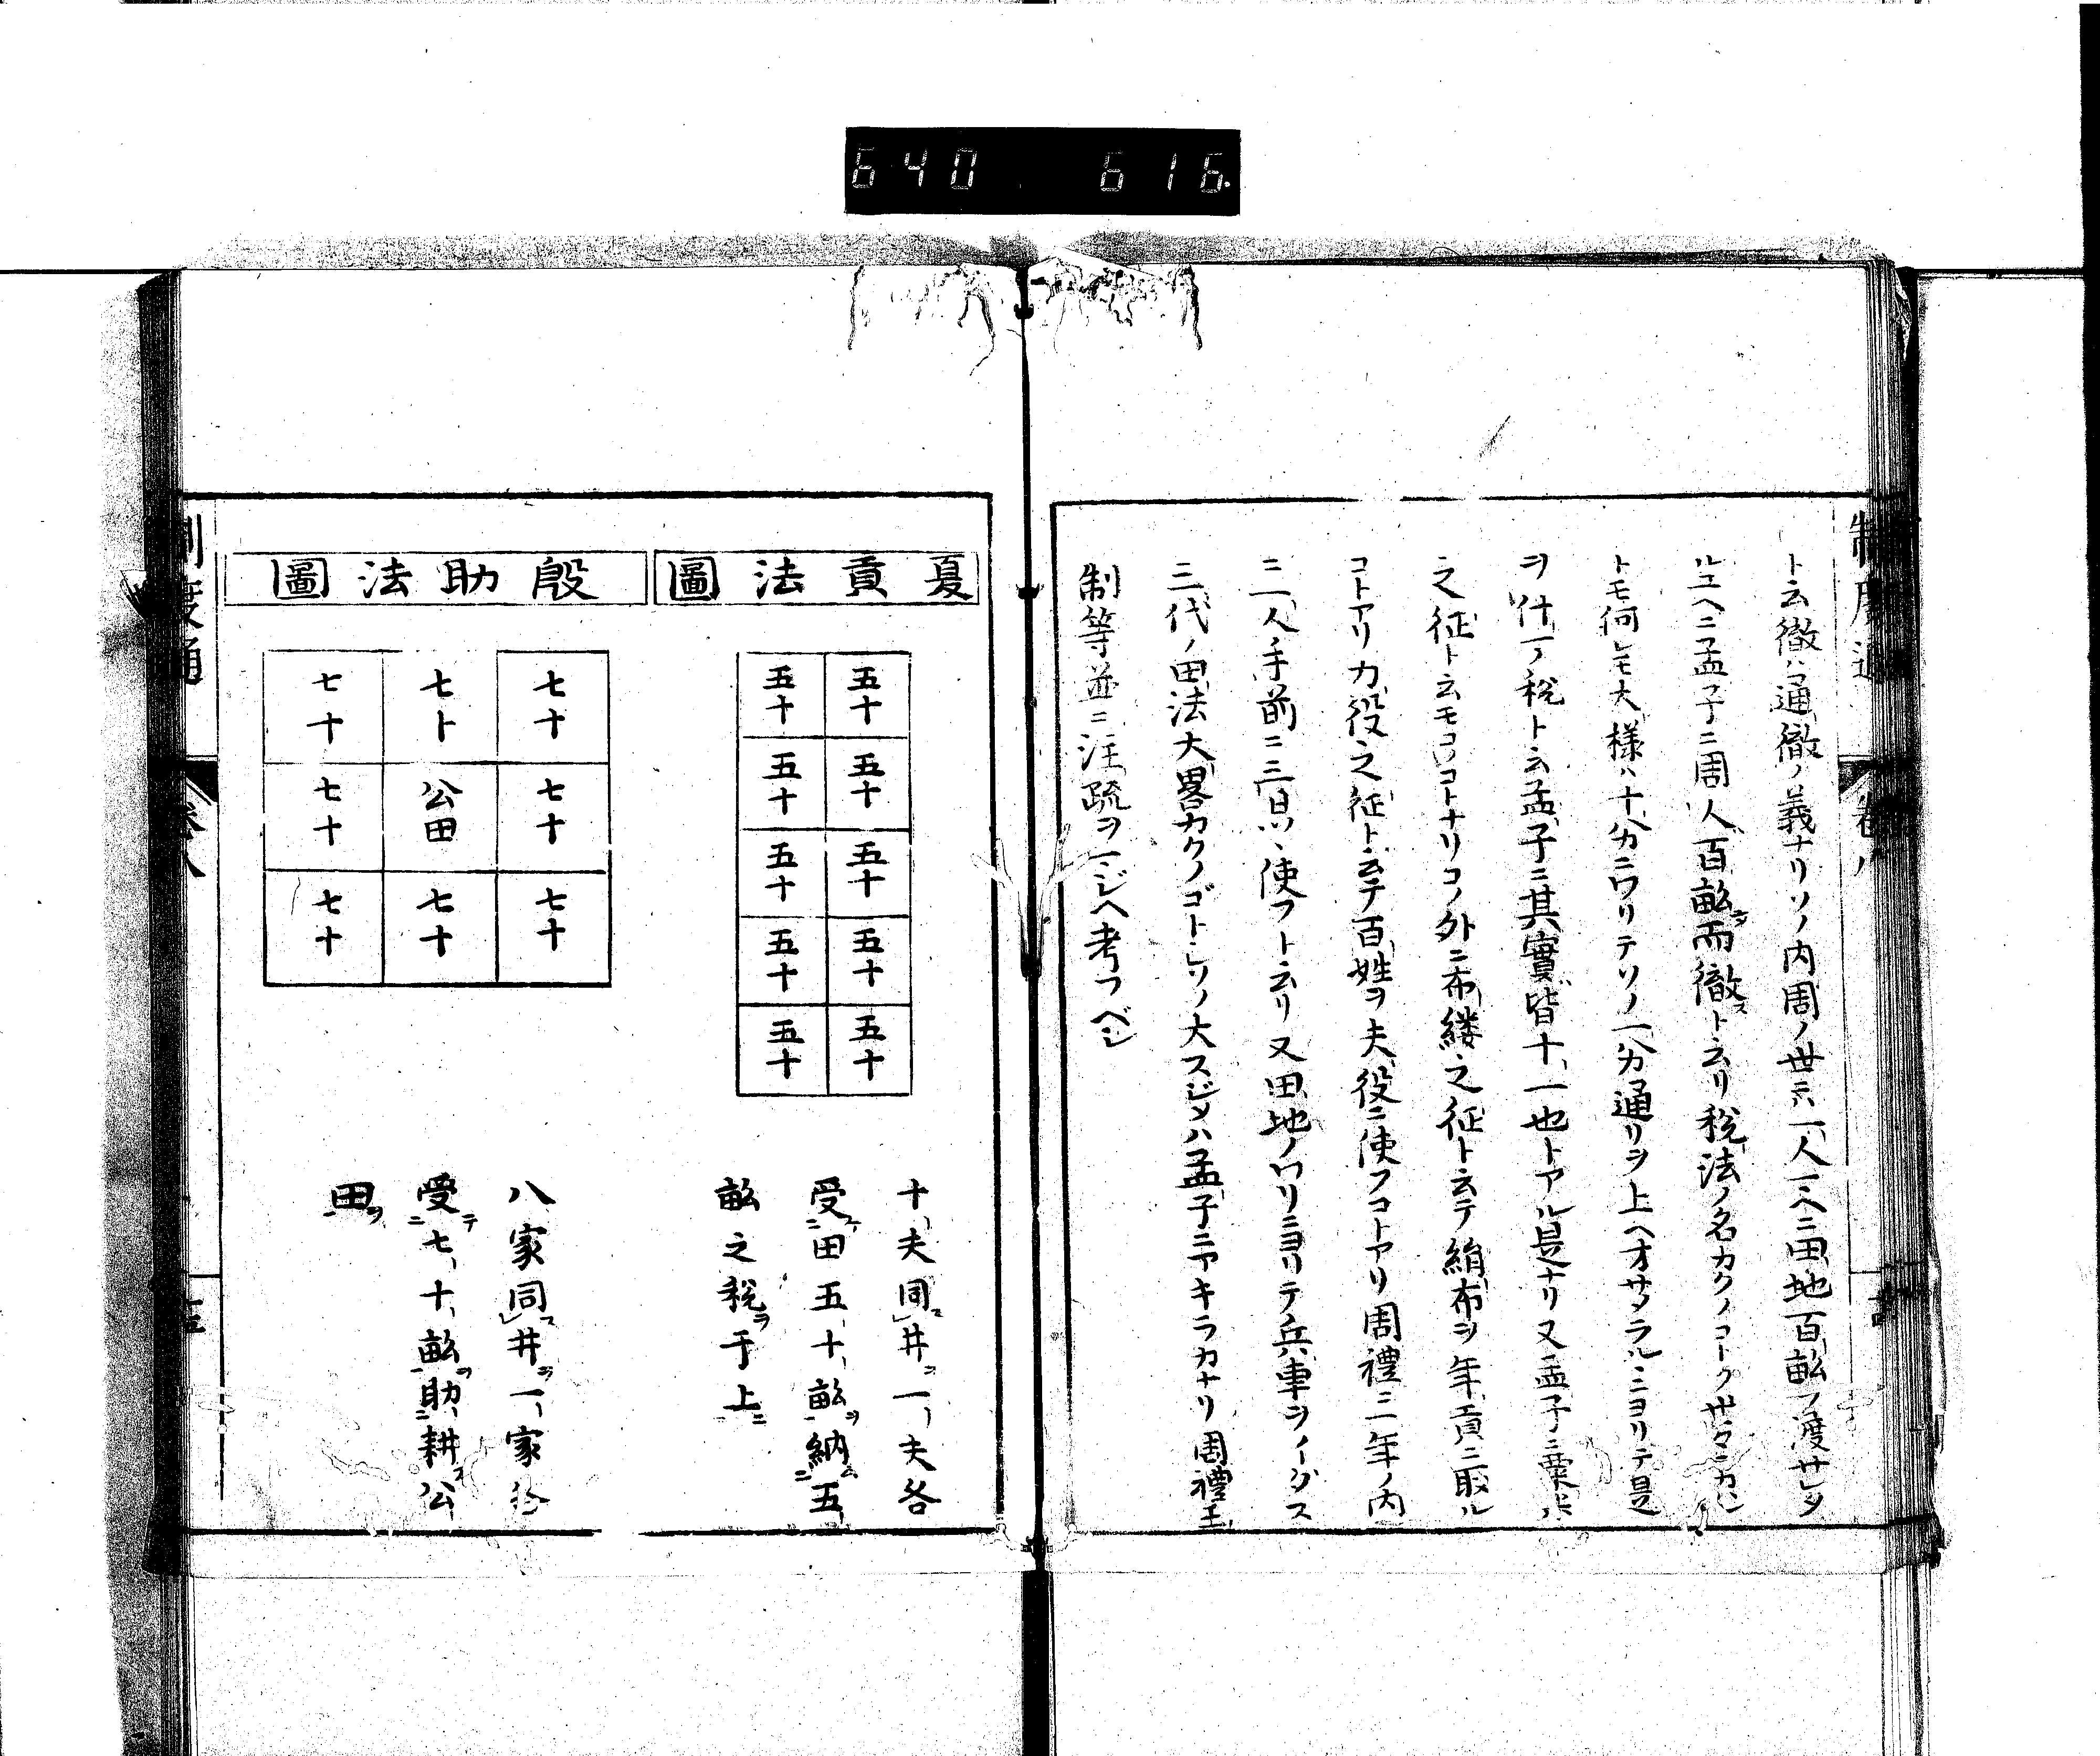 640 616
制度通 卷八
ト云徹ハ通徹ノ義ナリソノ内周ノ世ニハ一人一人ニ田地百畝ヲ渡サレタ
ルユヘニ孟子ニ周人百畝ヲ而徹スト云リ税法ノ名カクノコトク世々ニカハレ
トモ何レモ大様ハ十分ニワリテソノ一分通リヲ上ヘオサメラルニヨリテ是
ヲ什一ノ税ト云孟子ニ其實皆十一也トアル是ナリ又孟子ニ粟米
之征ト云モコノコトナリコノ外ニ布縷之征ト云テ絹布ヲ年貢ニ取ル
コトアリ力役之征ト云テ百姓ヲ夫役ニ使フコトアリ周禮ニ年ノ内
ニ一人手前ニ三日ツヽ使フト云リ又田地ノワリニヨリテ兵車ヲイダス
三代ノ田法大畧カクノゴトシソノ大スジメハ孟子ニアキラカナリ周禮王
制等並ニ注疏ヲマジヘ考フベシ
夏貢法圖
五十 五十
五十 五十
五十 五十
五十 五十
五十 五十
十夫同ス井ヲ一夫各
受テ田五十畝ヲ納ム五
畝之税ヲ于上ニ
殷助法圖
七十 七十 七十
七十 公田 七十
七十 七十 七十
八家同ス井ヲ一家各
受テ七十畝ヲ助耕ス公
田ヲ
制度通 卷八